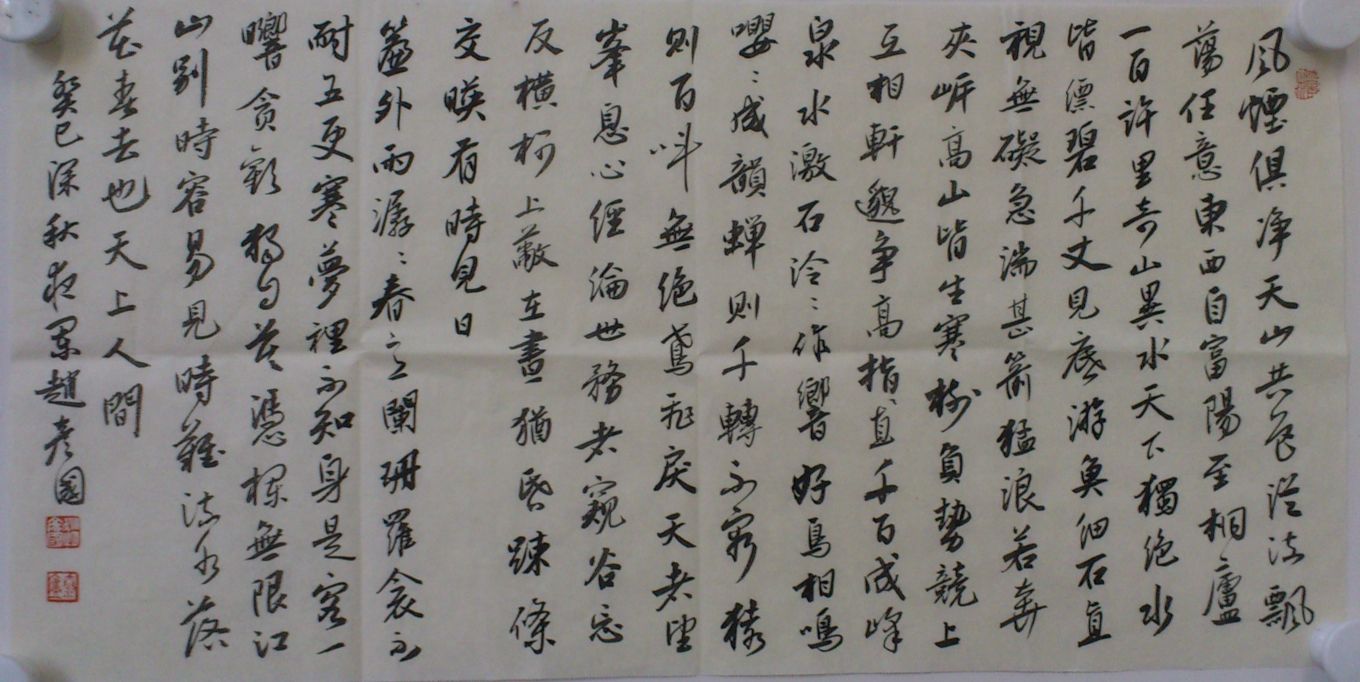 風煙俱净天山共色從流飄
蕩任意東西自富陽至桐廬
一百許里奇山異水天下獨絶水
皆漂碧千丈見底游魚細石直
視無礙急湍甚箭猛浪若奔
夾岸高山皆生寒樹負勢競上
互相軒邈争高指直千百成峰
泉水激石泠〻作響好鳥相鳴
嚶〻成韻蟬則千轉不窮猿
則百叫無絶鳶飛戾天者望
峯息心經綸世務者窺谷忘
反横柯上蔽在晝猶昏疎條
交暎有時見日
簾外雨潺〻春意闌珊羅衾不
耐五更寒夢裡不知身是客一
晌貪歡獨自莫憑欄無限江
山别時容易見時難流水落
花春去也天上人間
癸巳深秋夜墨趙彦國